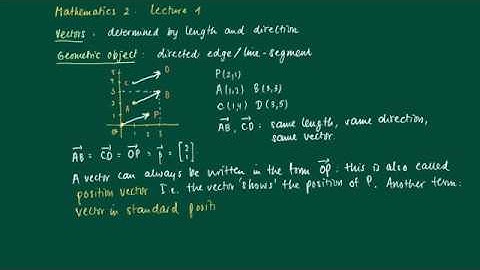 Mathematics 2: Lecture 1
Vectors: determined by length and direction
Geometric object: directed edge/line-segment
P(2,1)
A(1,2) B(3,3)
C(1,4) D(3,5)
AB, CD: same length, same direction,
same vector.
AB = CD = OP = p = [2 1]
A vector can always be written in the form OP: this is also called
position vector. I.e. the vector 'shows' the position of P. Another term:
vector in standard posit